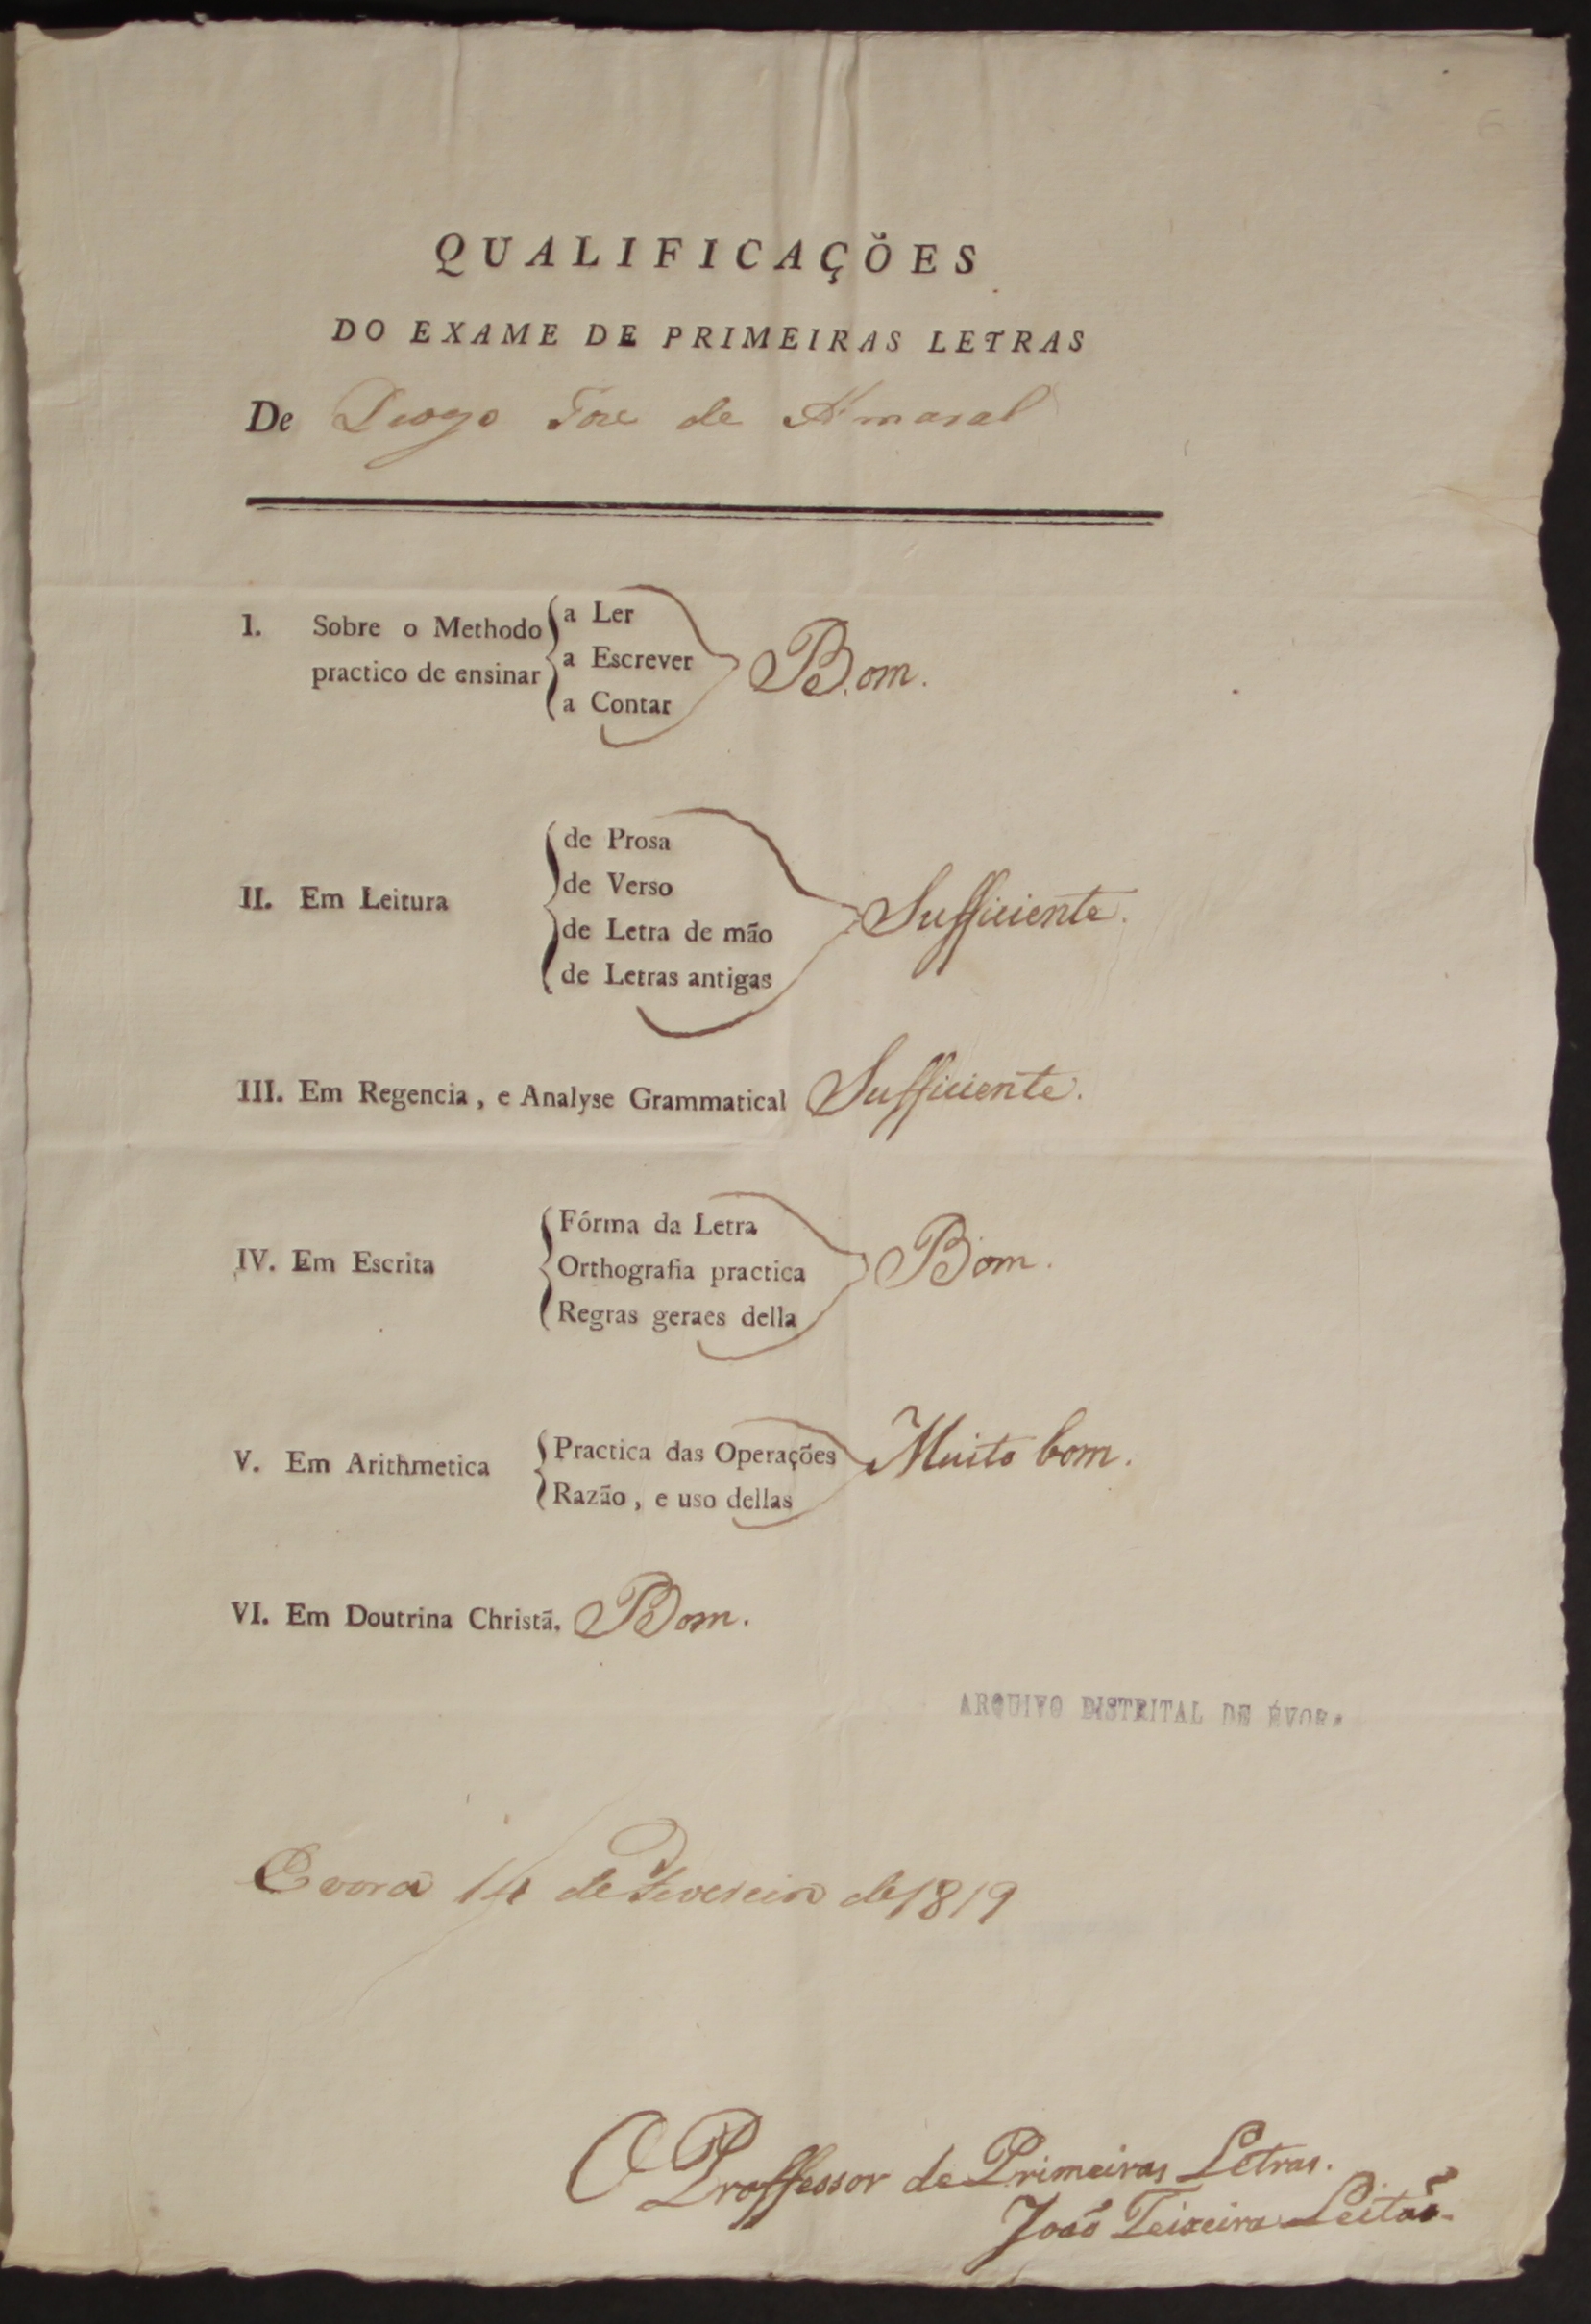 6
QUALIFICAÇÕES
DO EXAME DE PRIMEIRAS LETRAS
De Diogo Joze de Amaral
I. Sobre o Methodo practico de ensinar
a Ler
a Escrever
a Contar
Bom.
II. Em Leitura
de Prosa
de Verso
de Letra de mão
de Letras antigas
Sufficiente.
III. Em Regencia, e Analyse Grammatical Sufficiente.
IV. Em Escrita
Fórma da Letra
Orthografia practica
Regras geraes della
Bom.
V. Em Arithmetica
Practica das Operações
Razão, e uso dellas
Muito bom.
VI. Em Doutrina Christã. Bom.
ARQUIVO DISTRITAL DE ÉVORA
Evora 14 de Fevereiro de 1819
O Proffessor de Primeiras Letras.
João Teixeira Leitão.